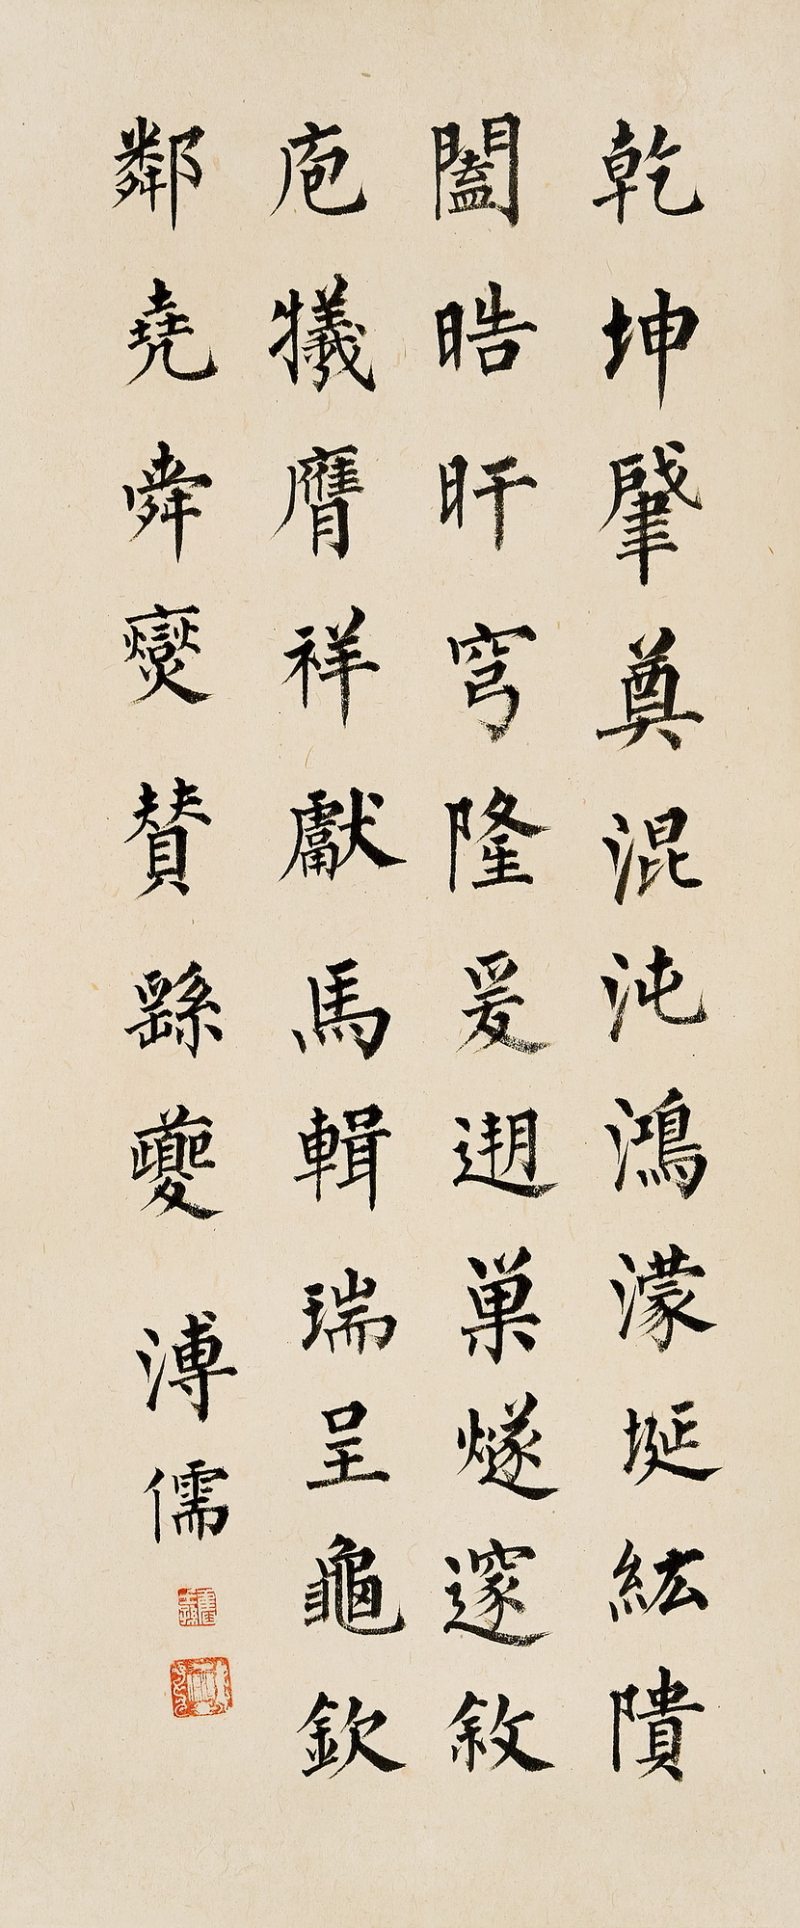 乾坤肈奠混沌鴻濛埏紘隤
闔晧旰穹隆爰遡巢燧邃敘
庖犧膺祥獻馬輯瑞呈龜欽
鄰堯舜爕贊繇夔
溥儒